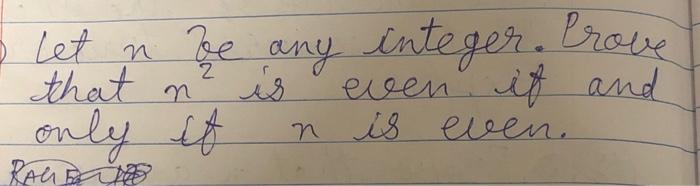 Let n be any integer. Prove
that n² is even if and
only if n is even.